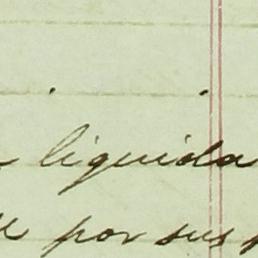 liquida
por sus